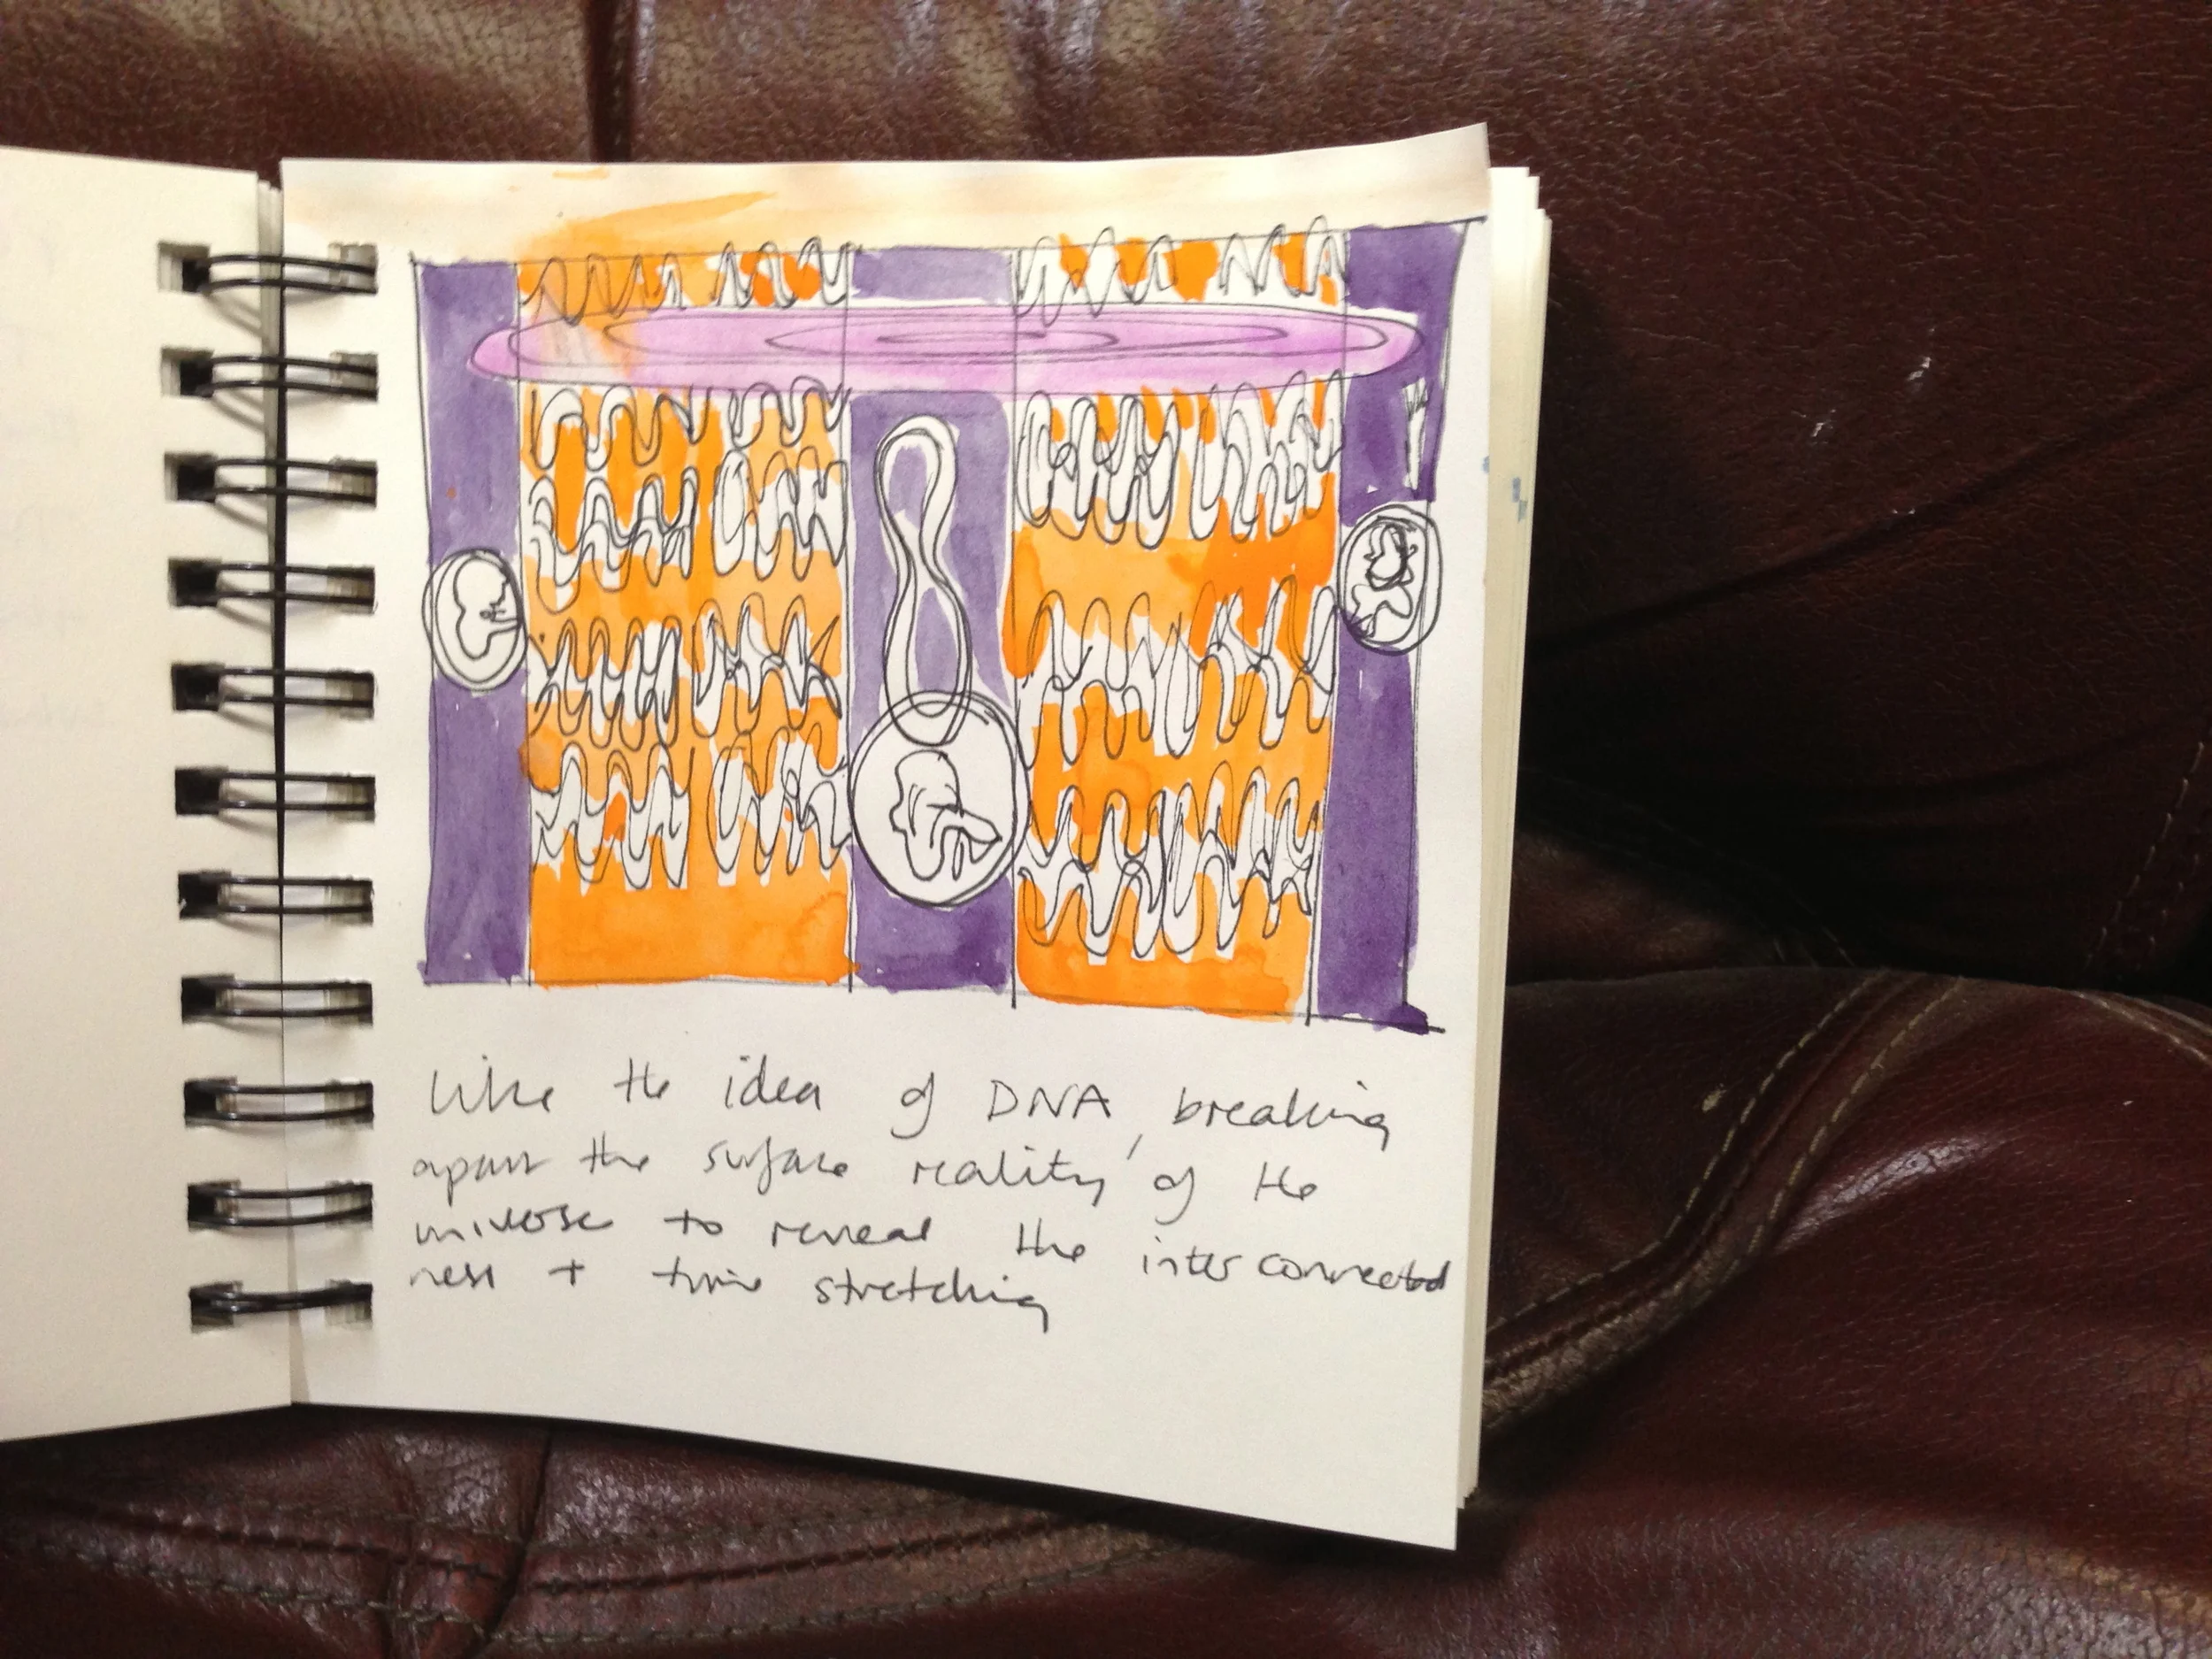 Like the idea of DNA, breaking
apart the surface reality of the
universe to reveal the interconnected
ness + time stretching